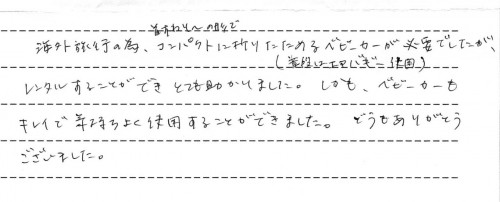 海外旅行の為、コンパクトに折りたためるベビーカーが必要でしたが、
(普段はエアバギー使用)
レンタルすることができとても助かりました。しかも、ベビーカーも
キレイで気持ちよく使用することができました。どうもありがとう
ございました。